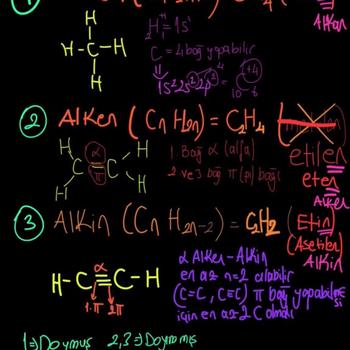 H
H-C-H
H
₂H = 1s¹
C = 4 bağ yapabilir
1s²2s²2p²
Alkan
② Alken (Cn H2n) = C₂H₄
H C=C H
α
π
H H
1. Bağ α (alfa)
2. ve 3 bağ π (pi) bağı
etilen
eten
Alken
③ Alkin (Cn H2n-2) = C₂H₂ (Etin)
(Asetilen)
Alkin
α
H-C≡C-H
1.π 2π
α Alken - Alkin
en az n=2 olabilir
(C=C, C≡C) π bağ yapabilmesi
için en az 2 C olmalı
1⇒Doymuş 2,3⇒Doymamış